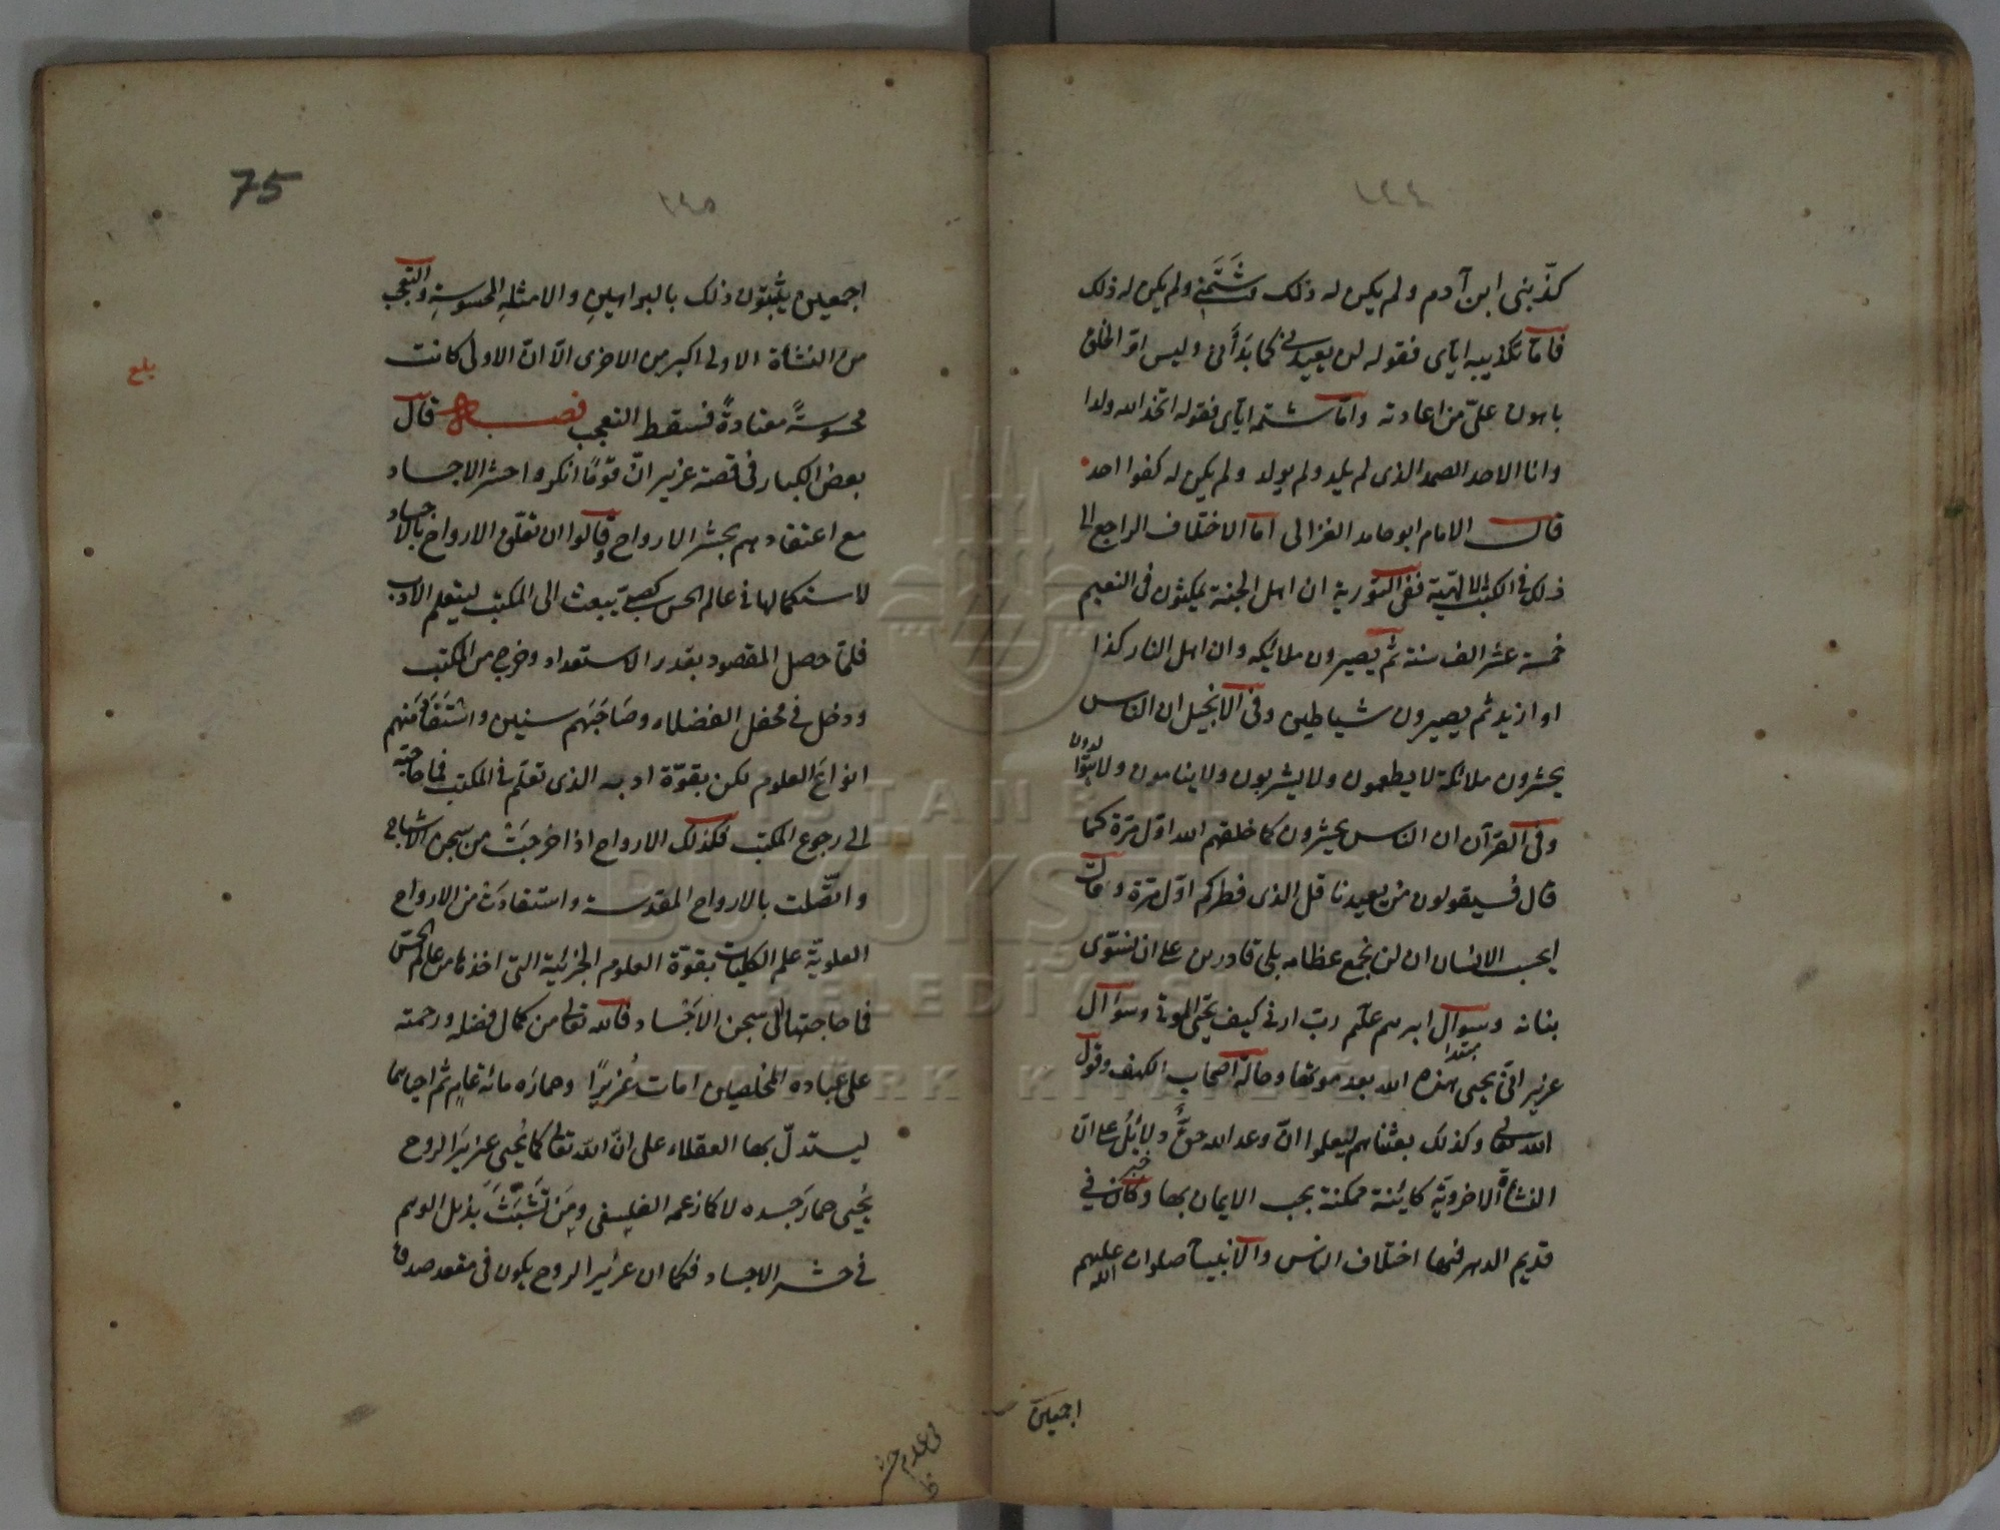 ١٤٤
كذّبنى ابن آدم ولم يكن له ذلك شَتَمَنى ولم يكن له ذلك
فامّا تكذيبه ايّاى فقوله لن يعيدنى كما بَدَأَنى وليس اوّل الخلق
باهون علىّ من اعادته وامّا شتمه ايّاى فقوله اتخذ الله ولدا
وانا الاحد الصمد الذى لم يلد ولم يولد ولم يكن له كفوا احد
قال الامام ابو حامد الغزالى امّا الاختلاف الراجع الى
ذلك فى الكتب الالهيّة ففى التورية ان اهل الجنة يمكثون فى النعيم
خمسة عشر الف سنة ثم يصيرون ملائكه وان اهل النار كذا
او ازيد ثم يصيرون شياطين وفى الانجيل ان الناس
يحشرون ملائكة لا يطعمون ولا يشربون ولا ينامون ولا يتوالدون
وفى القرآن ان الناس يحشرون كما خلقهم الله اوّل مرّة كما
قال فسيقولون من يعيدنا قل الذى فطركم اوّل مرّة وقال
ايحسب الانسان ان لن نجمع عظامه بلى قادرين على ان نسوّى
بنانه وسؤال ابرهيم علم ربّ ارنى كيف تحيى الموتى وسؤال
عزير انّى يحيى هذه الله بعد موتها وحالة اصحاب الكهف وقول
مبتدا
الله تعالى وكذلك بعثناهم ليعلموا انّ وعد الله حقٌّ دلائلُ على انّ
خبر
النشأة الاخرويّة كائنة ممكنة يجب الايمان بها وكان فى
قديم الدهر فيها اختلاف الناس والانبياء صلوات الله عليهم
اجمعين
75
١٤٥
اجمعين يثبتون ذلك بالبراهينِ والامثلهِ المحسوسةِ والتعجب
من النشأة الاولى اكبر من الاخرى الّا انّ الاولى كانت
بلغ
محسوسةً معتادةً فسقط التعجب فصل قال
بعض الكبار فى قصة عزير انّ قومًا انكروا حشر الاجساد
مع اعتقادهم بحشر الارواح وقالوا ان تعلّق الارواح بالاجساد
لاستكمالها فى عالم الحس كصبىّ يبعث الى المكتب ليتعلم الادب
فلمّا حصل المقصود بقدر الاستعداد وخرج من المكتب
ودخل فى محفل الفضلاء وصَاحَبَهم سنين واستفاد منهم
انواعَ العلوم لكن بقوّة ادبه الذى تعلّم فى المكتب فما حاجته
الى رجوع المكتب فكذلك الارواح اذا خرجَتْ من سجن الاشباح
واتّصلت بالارواح المقدسة واستفادَت من الارواح
العلويّة علم الكليات بقوة العلوم الجزئية التى اخذها من عالم الحسّ
فما حاجتها الى سجن الاجساد فالله تعالى من كمال فضله ورحمته
على عباده المخلصين امات عُزيرًا وحمارَه مائة عام ثم احياهما
ليستدلّ بها العقلاء على انّ الله تعالى كما يُحيى عزيرَ الروح
يُحيى حمارَ جسده لا كما زعمه الفلسفى ومَن تَشَبَّثَ بذيل الوهم
فى حشر الاجساد فكما ان عزيرَ الروح يكون فى مقعد صدق
فى عدم حشر
ظ